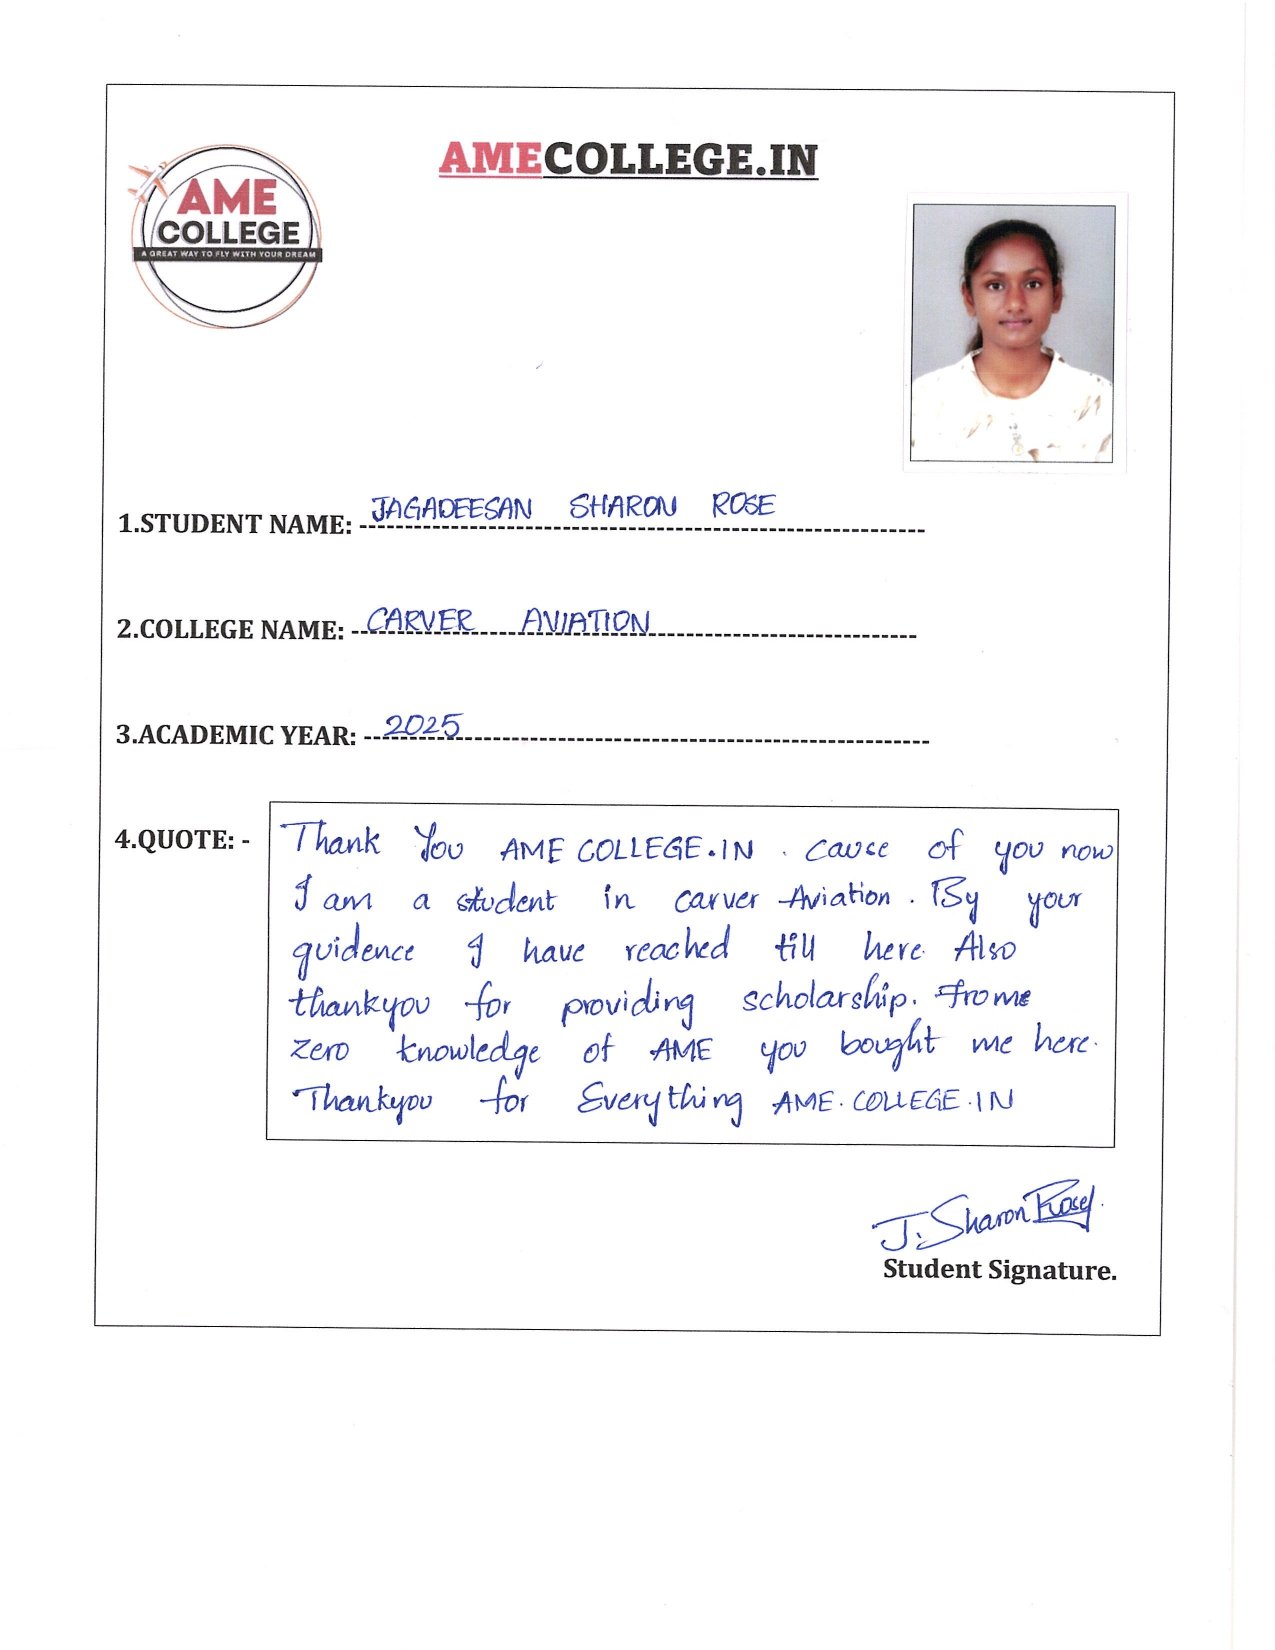 AMECOLLEGE.IN
AME
COLLEGE
A GREAT WAY TO FLY WITH YOUR DREAM
1.STUDENT NAME: JAGADEESAN SHARON ROSE
2.COLLEGE NAME: CARVER AVIATION
3.ACADEMIC YEAR: 2025
4.QUOTE: -
Thank You AME COLLEGE.IN . Cause of you now
I am a student in carver Aviation . By your
guidence I have reached till here. Also
thankyou for providing scholarship. Frome
zero knowledge of AME you bought me here.
Thankyou for Everything AME.COLLEGE.IN
J. Sharon Rose
Student Signature.